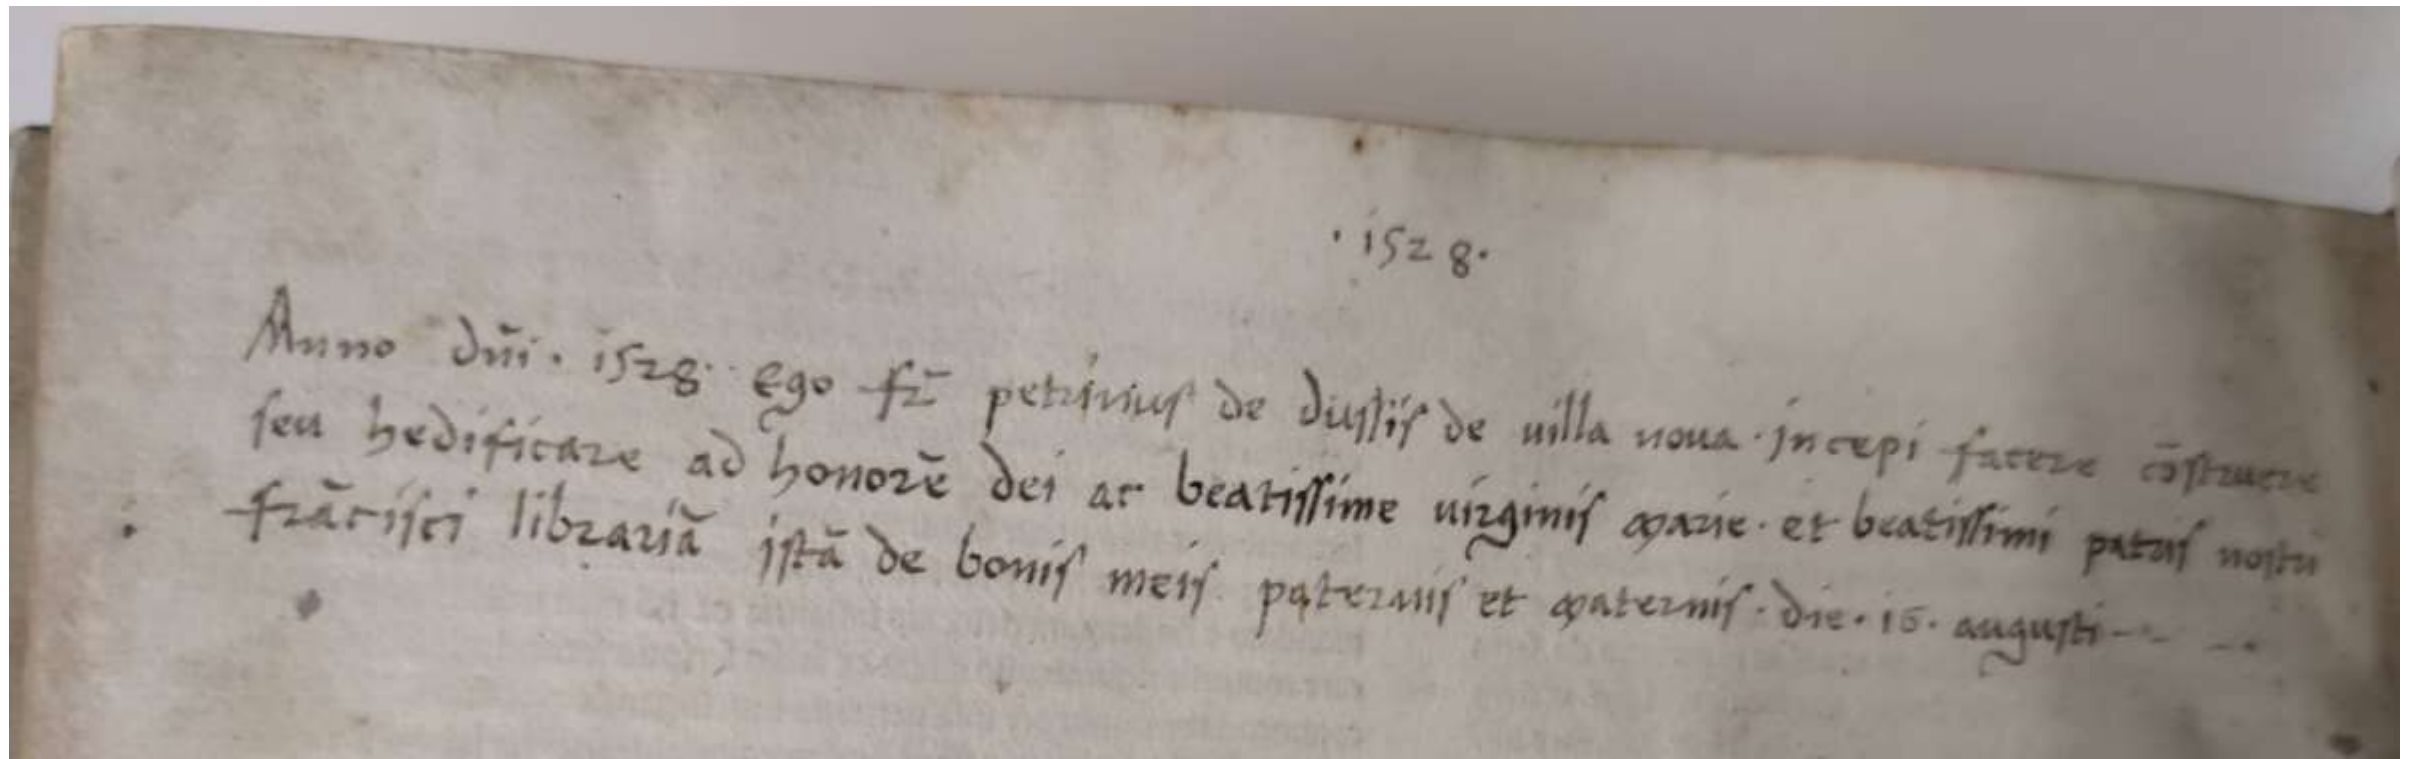 · 1528 ·
Anno dñi · 1528 · Ego fr̄ petrinus de dustis de uilla noua · incepi facere cõstruere
seu hedificare ad honorē dei ac beatissime uirginis marie · et beatissimi patris nostri
frãcisci librariã istã de bonis meis paternis et maternis · die · 16 · augusti